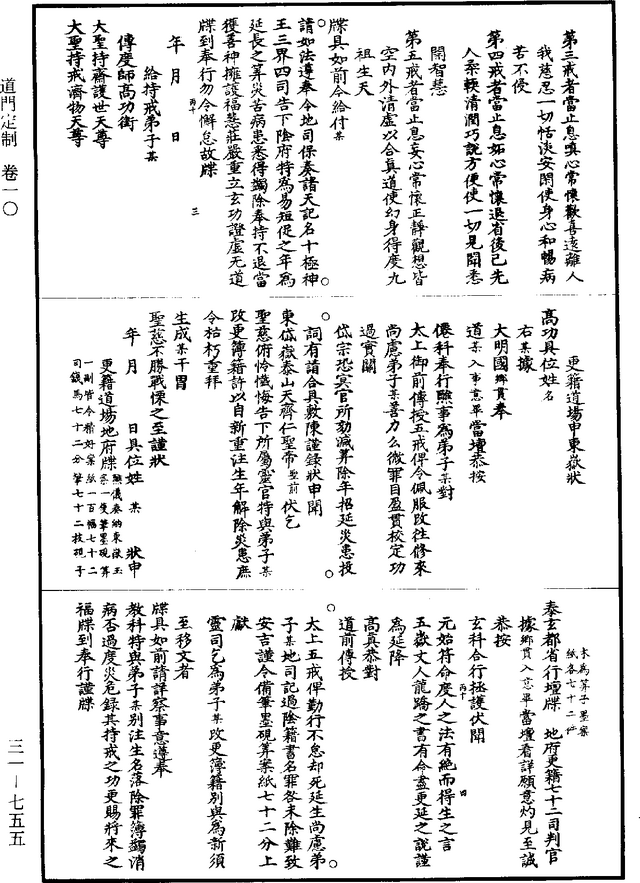 第三戒者當止息嗔心常懷歡喜遠離人
我慈忍一切恬淡安閑使身心和暢病
苦不侵
第四戒者當止息妬心常懷退省後己先
人柔輭清潤巧說方便使一切見聞悉
開智慧
第五戒者當止息妄心常懷正靜觀想皆
空內外清虛以合真道使幻身得度九
祖生天
牒具如前今給付某
請如法遵奉令地司保奏諸天記名十極神
王三界四司告下陰府特為易短促之年為
延長之筭災苦病患悉得蠲除奉持不退當
獲善神擁護福慧莊嚴重立玄功證虛无道
牒到奉行勿令懈怠故牒
丙十
三
年 月 日
給持戒弟子某
傳度師高功銜
大聖持齋護世天尊
大聖持戒濟物天尊
更籍道場申東嶽狀
高功具位姓名
右某據
大明國鄉貫奉
道某入事意畢當壇恭按
僊科奉行熙事為弟子某對
太上御前傳授五戒俾令佩服改往修來
尚慮弟子某善力么微罪目盈貫校定功
過實關
岱宗恐冥官所劾減筭除年招延災患投
詞有請合具敷陳謹錄狀申聞
東岱嶽泰山天齊仁聖帝聖前伏乞
聖慈俯怜懺悔告下所屬靈官特與弟子某
改更簿籍許以自新重注生年解除災患庶
令枯朽重拜
生成某干冒
聖慈不勝戰慄之至謹狀
年 月 日具位姓 某 狀申
更籍道場地府牒
奏玄都省行壇牒 地府更籍七十二司判官
據鄉貫入意畢當壇看詳願意灼見至誠
恭按
玄科合行拯護伏聞
元始符命度人之法有絕而得生之言
丙十
四
五嶽丈人龍蹻之書有命盡更延之說謹
為延降
高真恭對
道前傳授
太上五戒俾勤行不怠却死延生尚慮弟
子某地司記過陰籍書名罪咎未除難致
安吉謹令備筆墨硯筭案紙七十二分上
獻
靈司乞為弟子某改更簿籍別與為新須
至移文者
牒具如前請詳察事意遵奉
教科特與弟子某別注生名落除罪簿蠲消
病否過度災危錄其持戒之功更賜將來之
福牒到奉行謹牒
道門定制 卷一〇
三一—七五五